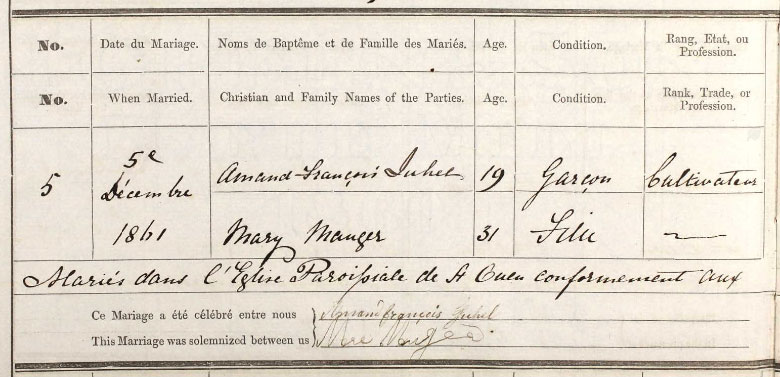 No. Date du Mariage. Noms de Baptême et de Famille des Mariés. Age. Condition. Rang, Etat, ou Profession.
No. When Married. Christian and Family Names of the Parties. Age. Condition. Rank, Trade, or Profession.
5 5e Décembre 1861 Amand-François Juhel 19 Garçon Cultivateur
Mary Mauger 31 Fille —
Mariés dans l'Eglise Paroissiale de St Ouen conformement aux
Ce Mariage a été célébré entre nous françois Juhel
This Marriage was solemnized between us